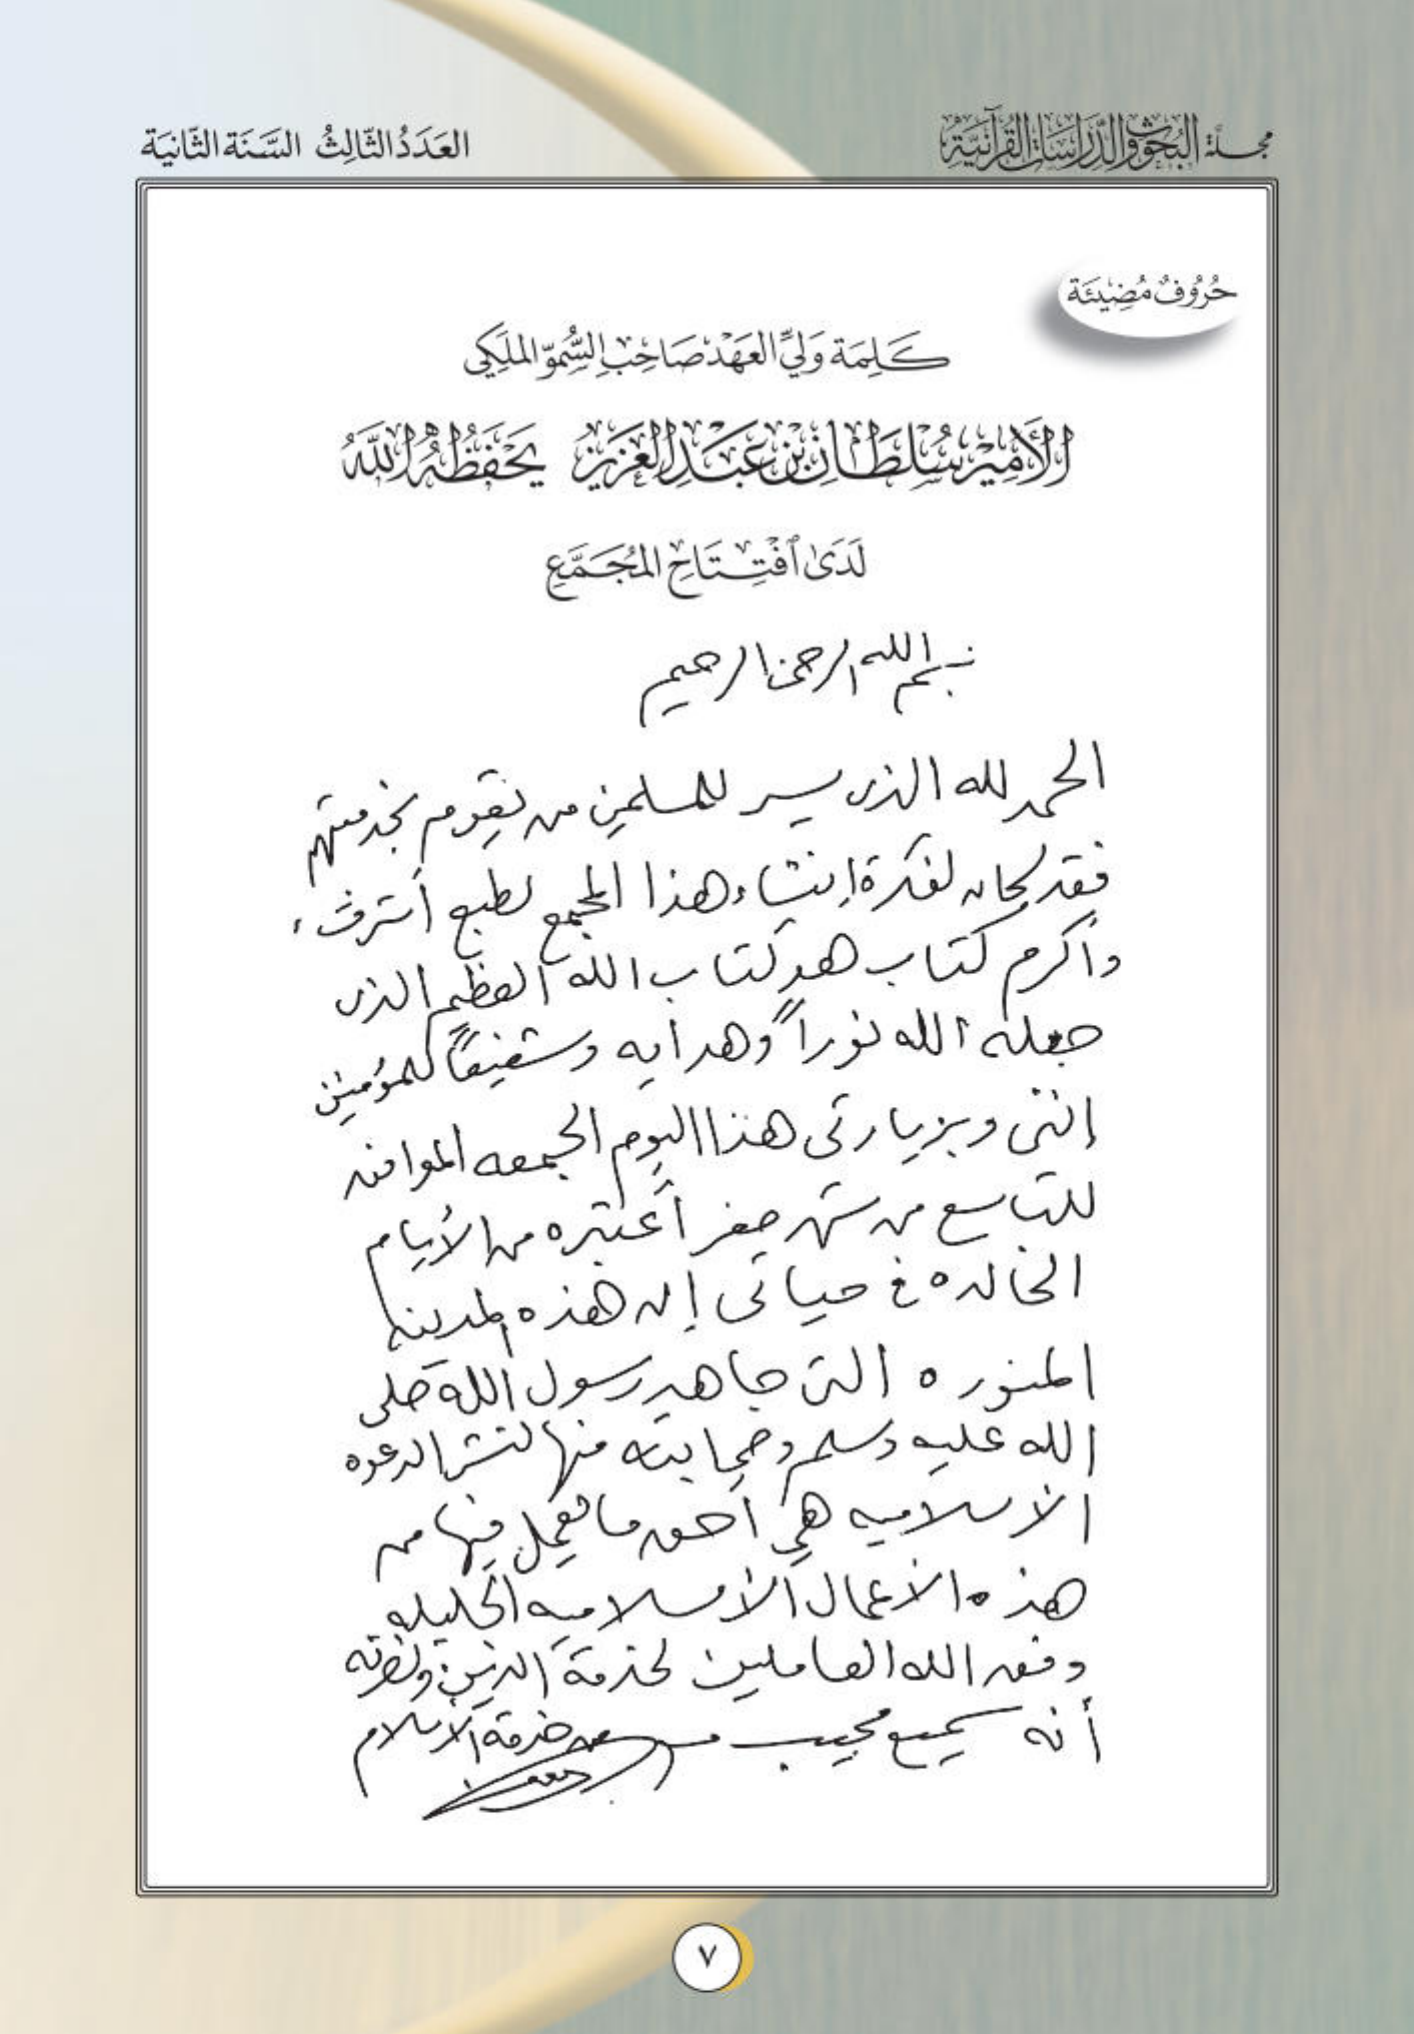 مجلة البُحُوثِ وَالدِّرَاسَاتِ القُرْآنِيَّةِ
العَدَدُ الثَّالِثُ السَّنَة الثَّانِيَة
حُرُوفٌ مُضِيئَة
كَلِمَة وَلِيِّ العَهْد صَاحِب السُّمُوّ الملَكِي
الأَمِيْر سُلْطَان بْن عَبْد العَزِيْز يَحْفَظْهُ اللَّهُ
لَدَى افْتِتَاحِ المُجَمَّعِ
بسم الله الرحمن الرحيم
الحمد لله الذى يسر للمسلمين من يقوم بخدمتهم
فقد كان لفكرة إنشاء هذا المجمع لطبع أشرف
وأكرم كتاب هو كتاب الله العظيم الذى
جعله الله نوراً وهدايه وشفيعاً للمؤمنين
إننى وبزيارتى هذا اليوم الجمعه الموافق
للتاسع من شهر صفر أعتبره من الأيام
الخالده في حياتى إن هذه المدينه
المنوره التى جاهد رسول الله صلى
الله عليه وسلم وصحابته منها لنشر الدعوه
الاسلاميه هي أحق ما نعمل فيها من
هذه الأعمال الأسلاميه الجليله
وفق الله العاملين لخدمة الدين ونصرته
أنه سميع مجيب خدمة الأسلام
٧